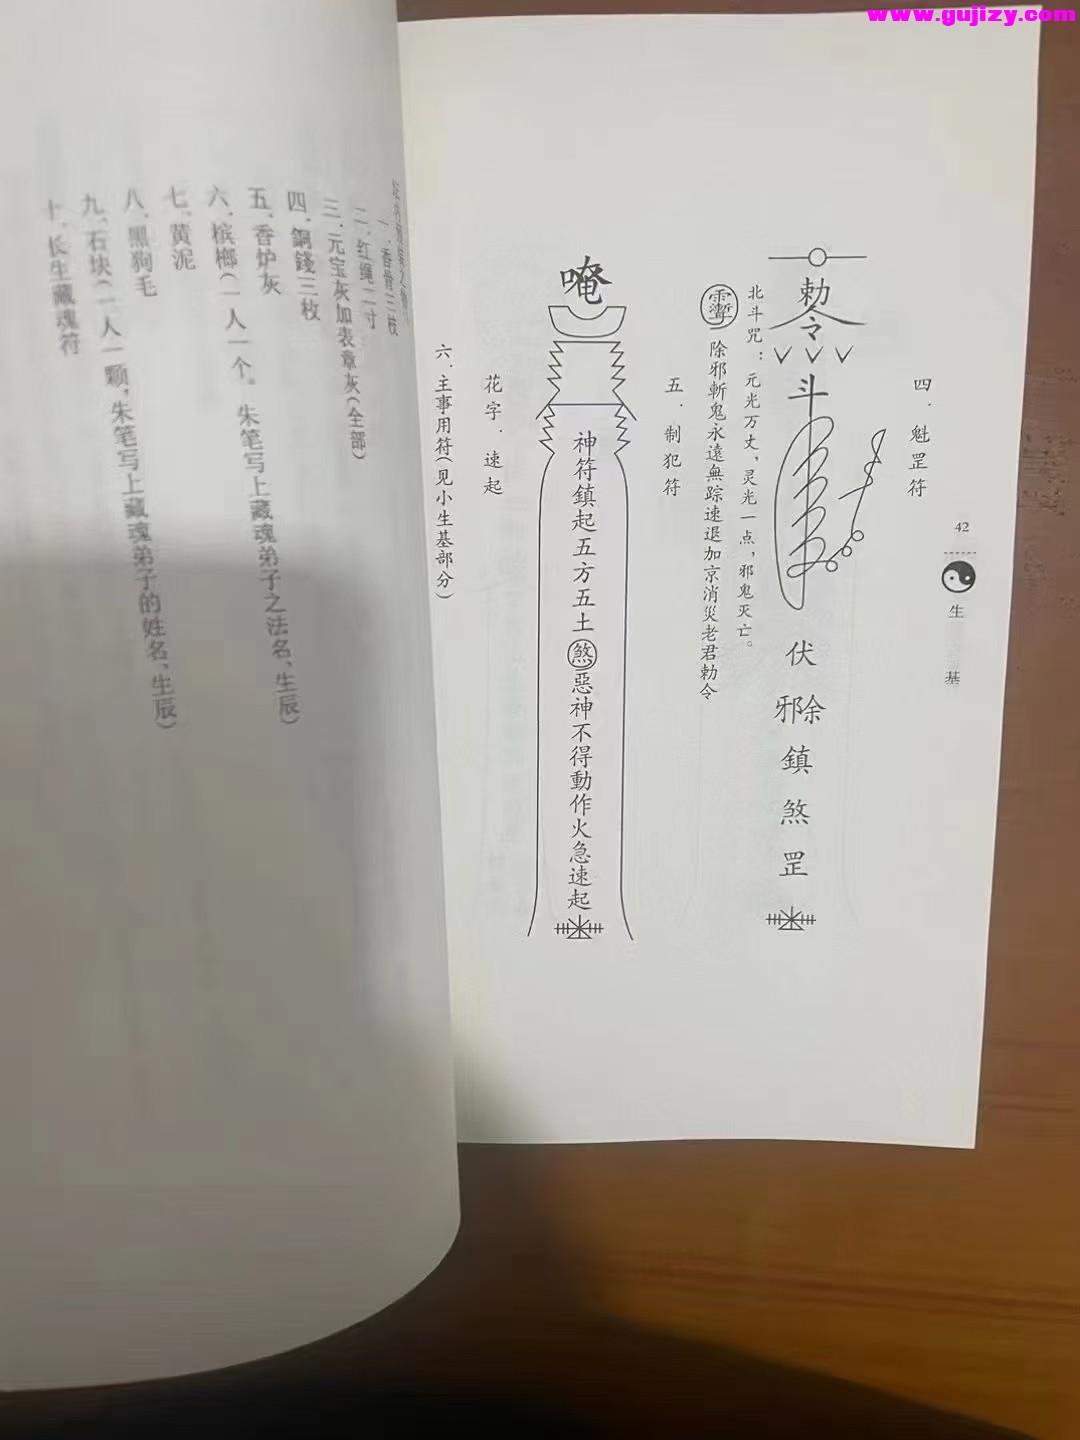 www.gujizy.com
42
生基
四．魁罡符
勅令
斗
伏
邪除
鎮
煞
罡
北斗咒：元光万丈，灵光一点，邪鬼灭亡。
除邪斬鬼永遠無踪速退加京消災老君勅令
五．制犯符
唵
神符鎮起五方五土煞惡神不得動作火急速起
花字．速起
六．主事用符（见小生基部分）
二．红绳二寸
三．元宝灰加表章灰（全部）
四．銅錢三枚
五．香炉灰
六．槟榔（一人一个。朱笔写上藏魂弟子之法名、生辰）
七．黄泥
八．黑狗毛
九．石块（一人一颗，朱笔写上藏魂弟子的姓名、生辰）
十．长生藏魂符